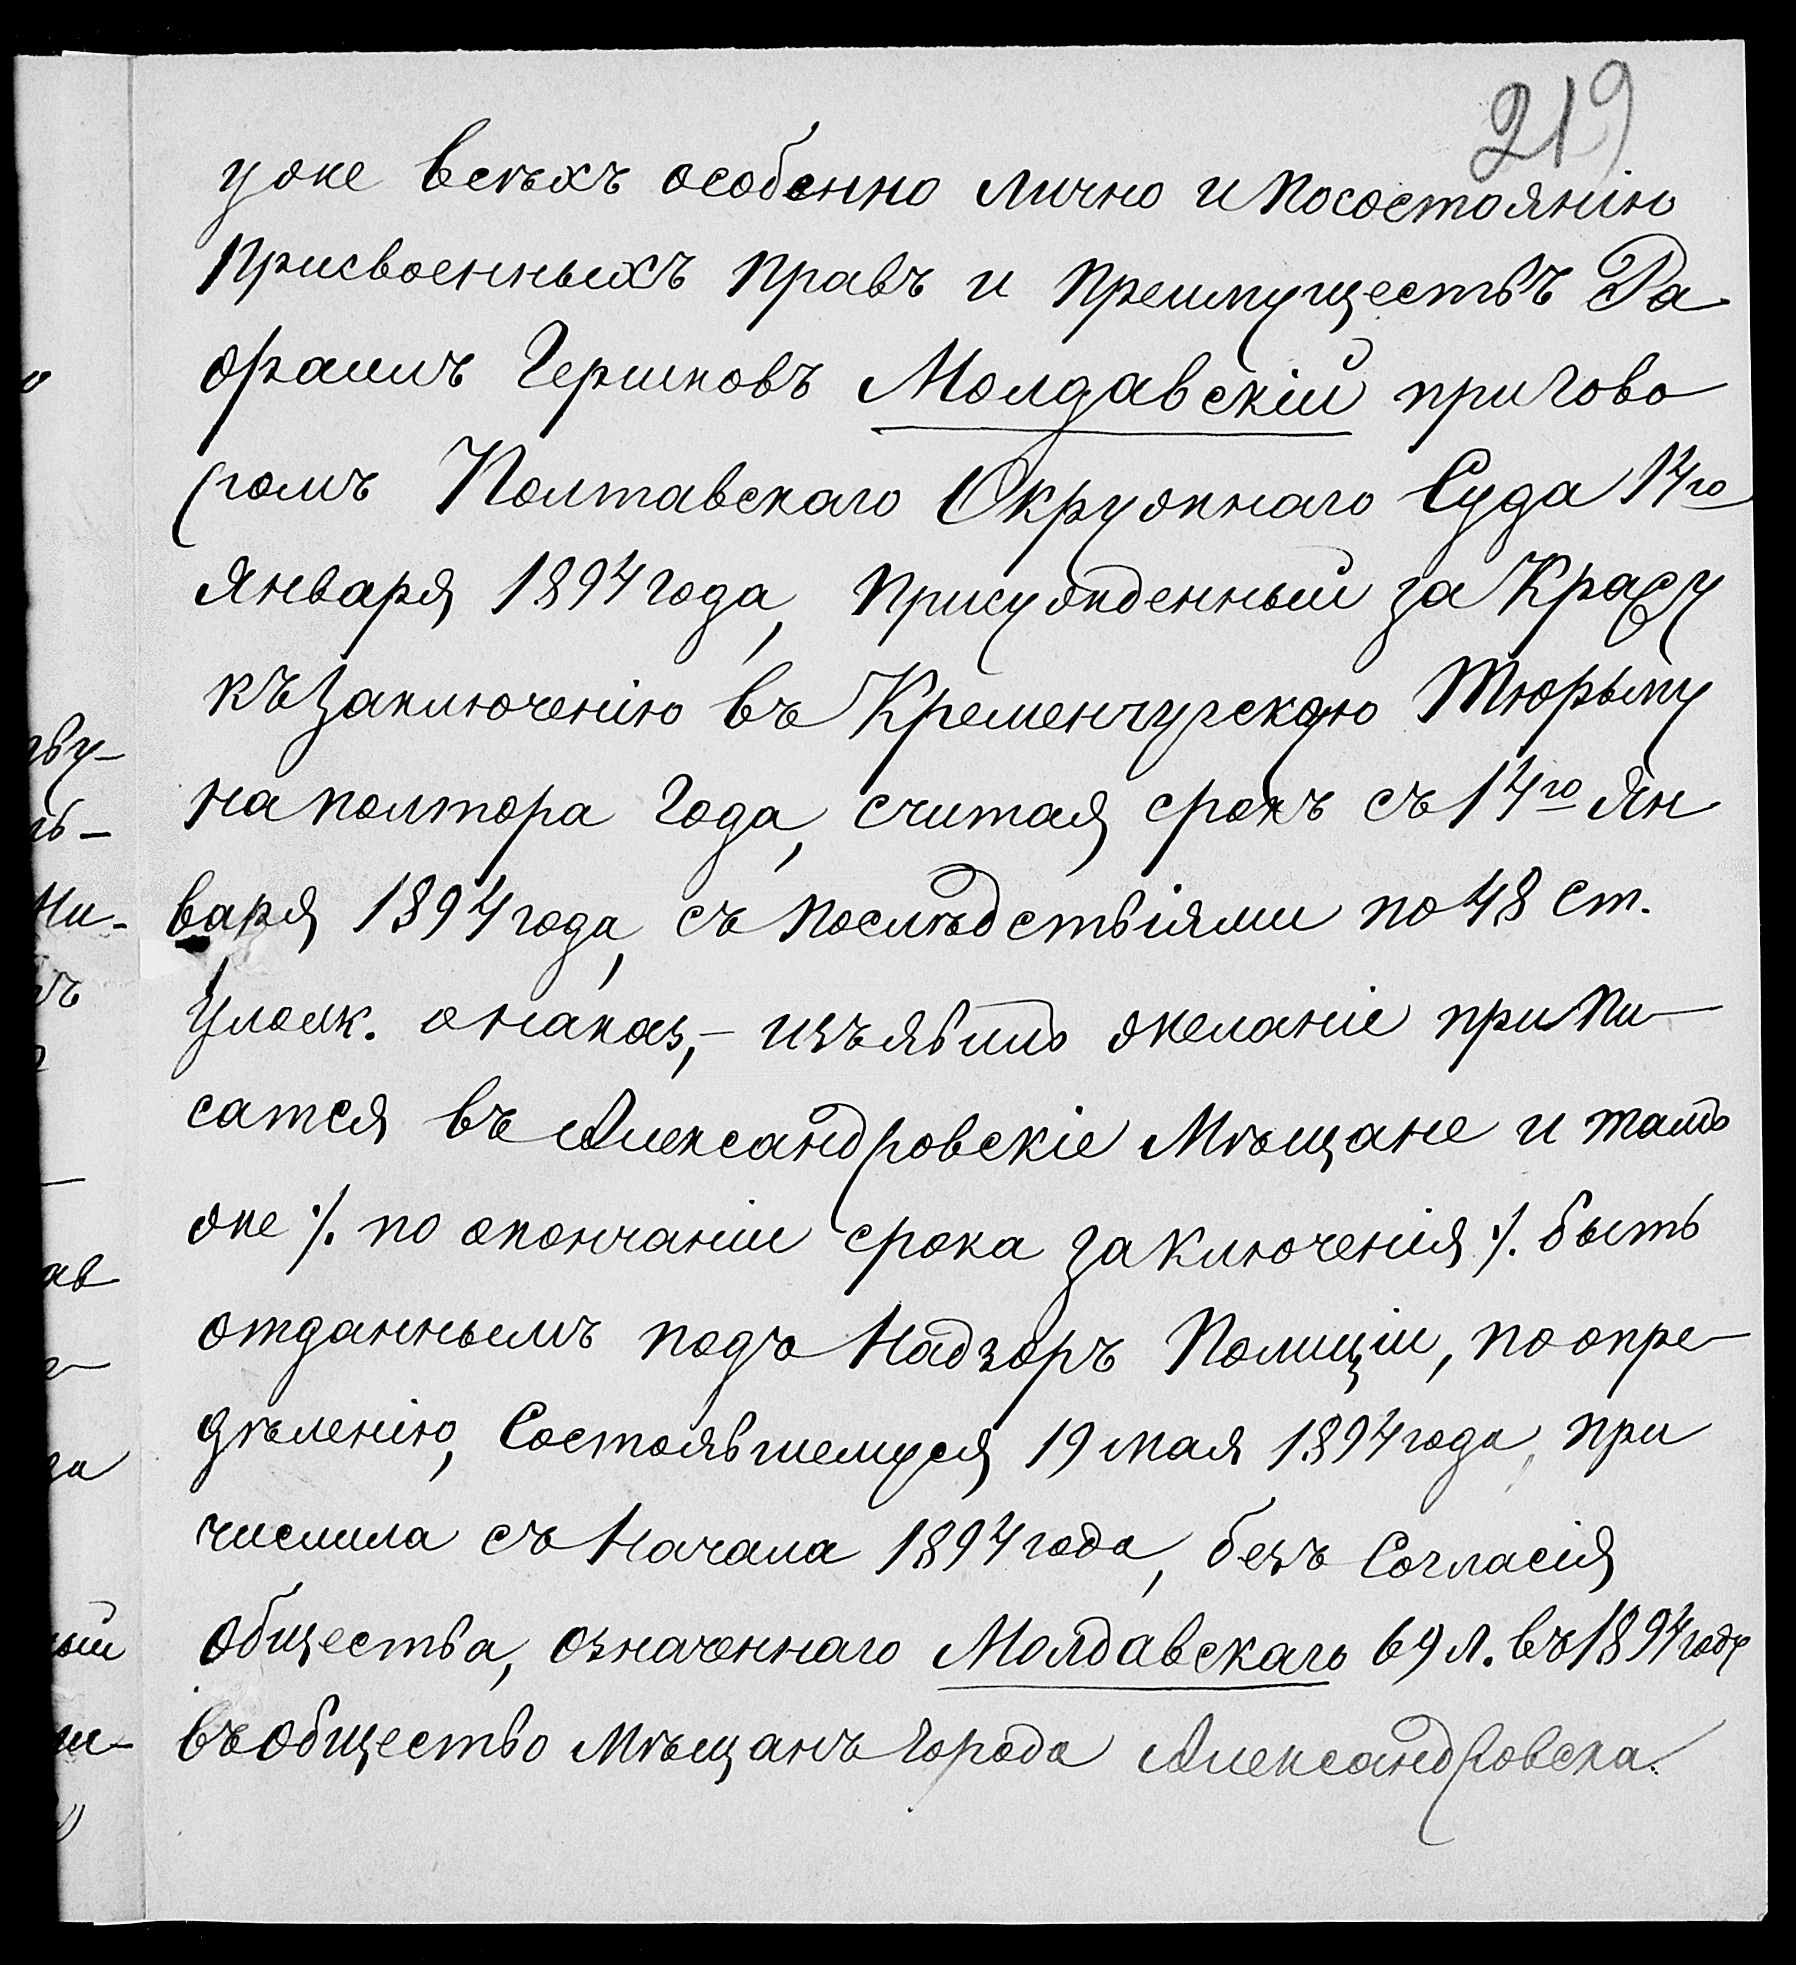 219
уже всѣхъ особенно лично и посостоянію
присвоенныхъ правъ и преимуществъ Да
Фраимъ Гершковъ Молдавскій пригово
ромъ Полтавскаго Окружнаго Суда 14го
Января 1894 года, присужденный за Кражу
къ заключенію въ Кременчугскую Тюрьму
на полтора года, считая срокъ съ 14го Ян
варя 1894 года, съ послѣдствіями по 48 ст.
Улож. о наказ,– изъявилъ желаніе припи–
сатся въ Александровскіе Мѣщане и тамъ
же ·/. по окончаніи срока заключенія ·/. быть
отданнымъ подъ Надзоръ Полиціи, по опре–
дѣленію, Состоявшемуся 19 мая 1894 года, при
числила съ Начала 1894 года, безъ Согласія
общества, означеннаго Молдавскаго 69 л. въ 1894 году
въ общество мѣщанъ города Александровска.